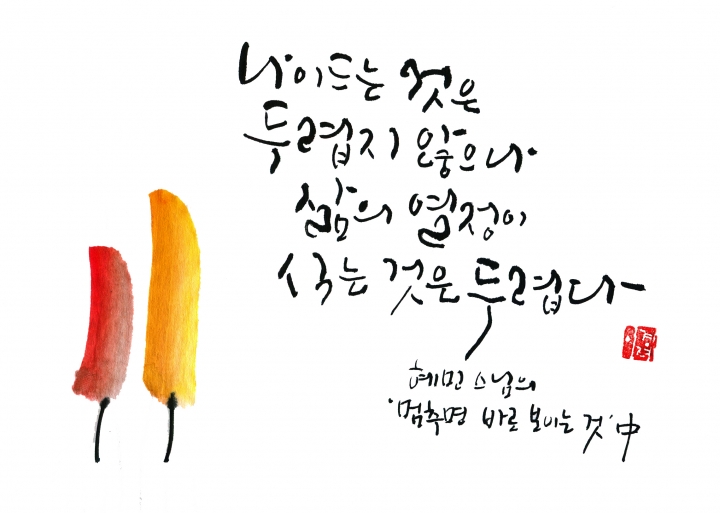 나이드는 것은
두렵지 않으나
삶의 열정이
식는 것은 두렵다
혜민 스님의
'멈추면 바로 보이는 것' 中